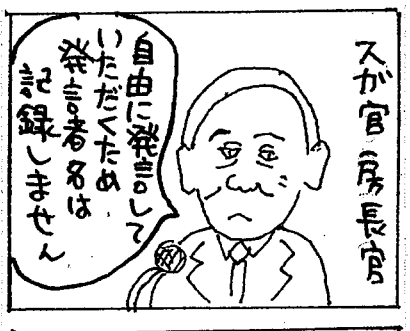 スガ官房長官
自由に発言して
いただくため
発言者名は
記録しません